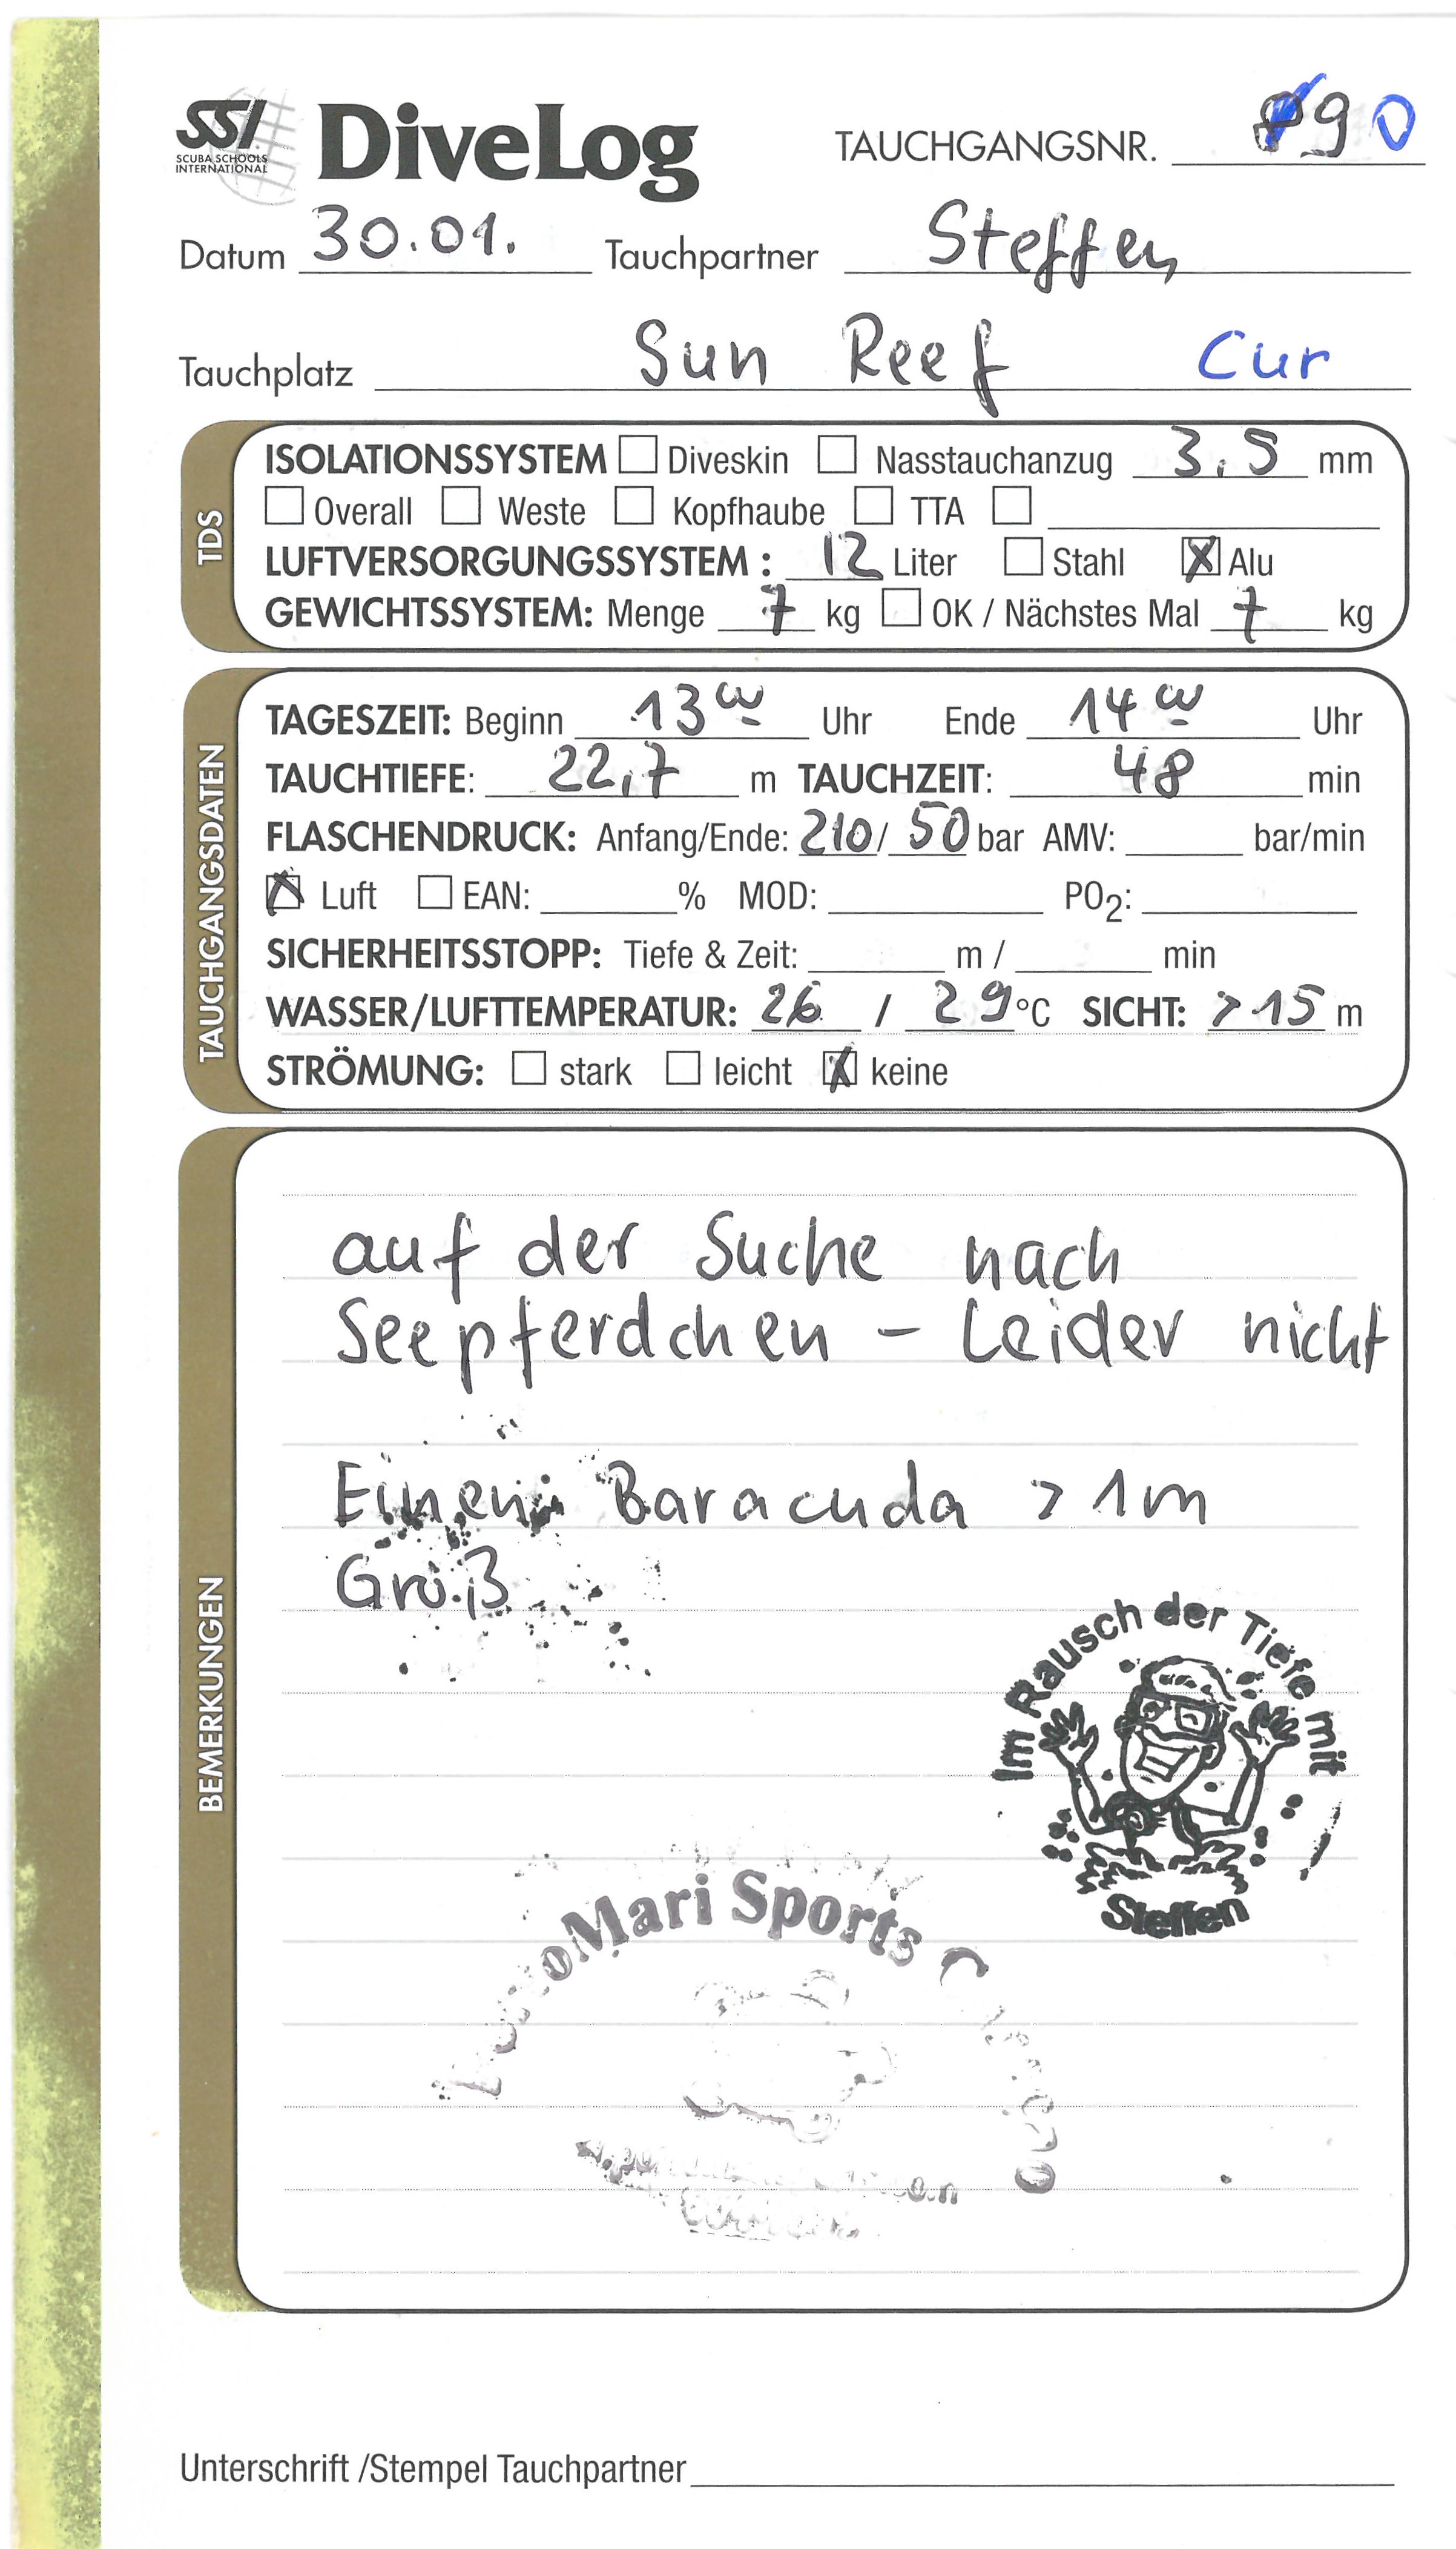 SSI DiveLog TAUCHGANGSNR. 90
SCUBA SCHOOLS
INTERNATIONAL
Datum 30.01. Tauchpartner Steffen
Tauchplatz Sun Reef Cur
TDS
ISOLATIONSSYSTEM Diveskin Nasstauchanzug 3,5 mm
Overall Weste Kopfhaube TTA
LUFTVERSORGUNGSSYSTEM : 12 Liter Stahl Alu
GEWICHTSSYSTEM: Menge 7 kg OK / Nächstes Mal 7 kg
TAUCHGANGSDATEN
TAGESZEIT: Beginn 13 00 Uhr Ende 14 00 Uhr
TAUCHTIEFE: 22,7 m TAUCHZEIT: 48 min
FLASCHENDRUCK: Anfang/Ende: 210/ 50 bar AMV: bar/min
Luft EAN: % MOD: PO2:
SICHERHEITSSTOPP: Tiefe & Zeit: m / min
WASSER/LUFTTEMPERATUR: 26 / 29 °C SICHT: > 15 m
STRÖMUNG: stark leicht keine
BEMERKUNGEN
auf der Suche nach
Seepferdchen - Leider nicht
Einen Baracuda > 1m
Groß
Im Rausch der Tiefe mit
Steffen
Mari Sports
Unterschrift /Stempel Tauchpartner